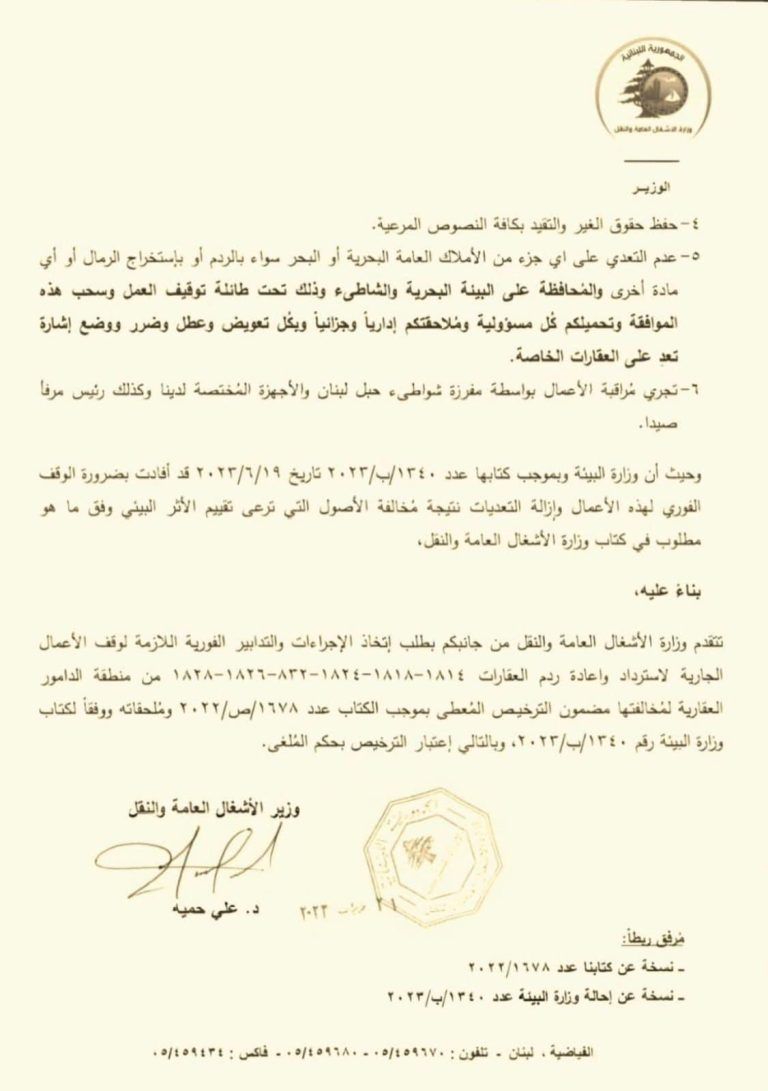 الجمهورية اللبنانية
وزارة الاشغال العامة والنقل
الوزيـر
٤- حفظ حقوق الغير والتقيد بكافة النصوص المرعية.
٥- عدم التعدي على اي جزء من الأملاك العامة البحرية أو البحر سواء بالردم أو بإستخراج الرمال أو أي
مادة أخرى والمُحافظة على البيئة البحرية والشاطىء وذلك تحت طائلة توقيف العمل وسحب هذه
الموافقة وتحميلكم كُل مسؤولية ومُلاحقتكم إدارياً وجزائياً وبكُل تعويض وعطل وضرر ووضع إشارة
تعدٍ على العقارات الخاصة.
٦- تجري مُراقبة الأعمال بواسطة مفرزة شواطىء جبل لبنان والأجهزة المختصة لدينا وكذلك رئيس مرفأ
صيدا.
وحيث أن وزارة البيئة وبموجب كتابها عدد ١٣٤٠/ب/٢٠٢٣ تاريخ ٢٠٢٣/٦/١٩ قد أفادت بضرورة الوقف
الفوري لهذه الأعمال وإزالة التعديات نتيجة مُخالفة الأصول التي ترعى تقييم الأثر البيئي وفق ما هو
مطلوب في كتاب وزارة الأشغال العامة والنقل،
بناءً عليه،
تتقدم وزارة الأشغال العامة والنقل من جانبكم بطلب إتخاذ الإجراءات والتدابير الفورية اللازمة لوقف الأعمال
الجارية لاسترداد واعادة ردم العقارات ١٨١٤-١٨١٨-١٨٢٤-٨٣٢-١٨٢٦-١٨٢٨ من منطقة الدامور
العقارية لمُخالفتها مضمون الترخيص المُعطى بموجب الكتاب عدد ١٦٧٨/ص/٢٠٢٢ ومُلحقاته ووفقاً لكتاب
وزارة البيئة رقم ١٣٤٠/ب/٢٠٢٣، وبالتالي إعتبار الترخيص بحكم المُلغى.
وزير الأشغال العامة والنقل
د. علي حميه
٢٠٢٣
مُرفق ربطاً:
- نسخة عن كتابنا عدد ٢٠٢٢/١٦٧٨
- نسخة عن إحالة وزارة البيئة عدد ١٣٤٠/ب/٢٠٢٣
الفياضية ، لبنان - تلفون : ٠٥/٤٥٩٦٧٠ - ٠٥/٤٥٩٦٨٠ - فاكس : ٠٥/٤٥٩٤٣٤